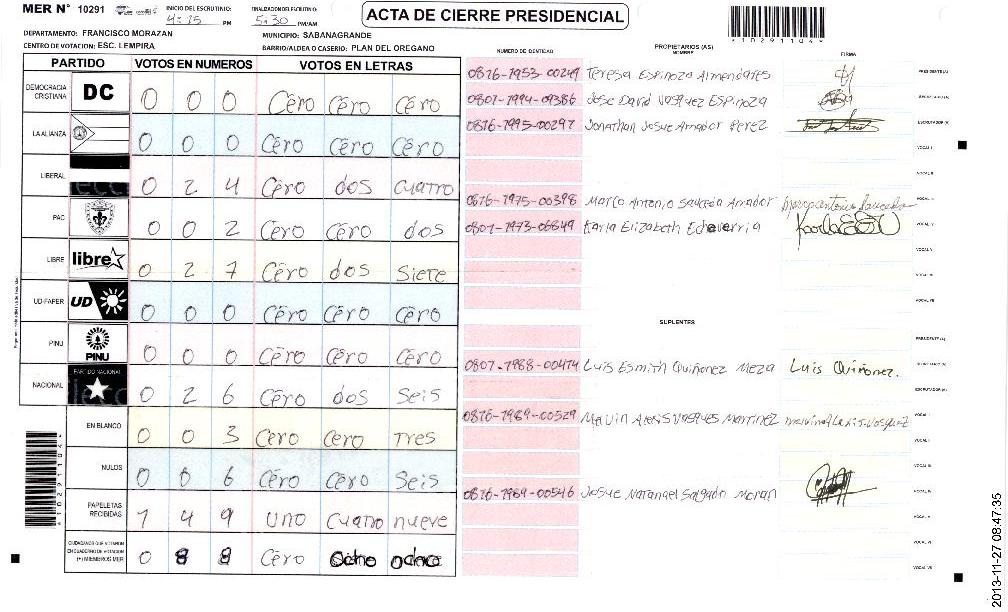 MER N° 10291
INICIO DEL ESCRUTINIO: 4:15 PM
FINALIZACION DEL ESCRUTINIO: 5:30 PM/AM
ACTA DE CIERRE PRESIDENCIAL
*10291104*
DEPARTAMENTO: FRANCISCO MORAZAN
MUNICIPIO: SABANAGRANDE
CENTRO DE VOTACION: ESC. LEMPIRA
BARRIO/ALDEA O CASERIO: PLAN DEL OREGANO
PARTIDO VOTOS EN NUMEROS VOTOS EN LETRAS
DEMOCRACIA CRISTIANA DC 0 0 0 Cero Cero Cero
LA ALIANZA 0 0 0 Cero Cero Cero
LIBERAL 0 2 4 Cero dos cuatro
PAC 0 0 2 Cero Cero dos
LIBRE libre 0 2 7 Cero dos Siete
UD-FAPER UD 0 0 0 Cero Cero Cero
PINU PINU 0 0 0 Cero Cero Cero
NACIONAL PARTIDO NACIONAL 0 2 6 Cero dos Seis
EN BLANCO 0 0 3 Cero Cero Tres
NULOS 0 0 6 Cero Cero Seis
PAPELETAS RECIBIDAS 1 4 9 uno cuatro nueve
CIUDADANOS QUE VOTARON EN CUADERNO DE VOTACION (+) MIEMBROS MER 0 8 8 Cero Ocho ocho
*10291104*
NUMERO DE IDENTIDAD PROPIETARIOS (AS) NOMBRE FIRMA
0816-1953-00249 Teresa Espinoza Almendares PRESIDENTE(A)
0801-1994-09386 Jose David Vasquez Espinoza SECRETARIO(A)
0816-1995-00297 Jonathan Josue Amador Perez ESCRUTADOR(A)
VOCAL I
VOCAL II
0816-1975-00398 Marco Antonio Sauceda Amador Marco antonio Sauceda
0801-1973-06849 Karla Elizabeth Echeverria
SUPLENTES
PRESIDENTE(A)
0801-1988-00474 Luis Esmith Quiñonez Meza Luis Quiñonez. SECRETARIO(A)
ESCRUTADOR(A)
0816-1989-00529 Melvin Alexis Vasques Martinez melvin Alexis Vasquez
0816-1989-00546 Josue Natanael Salgado Moran
2013-11-27 08:47:35